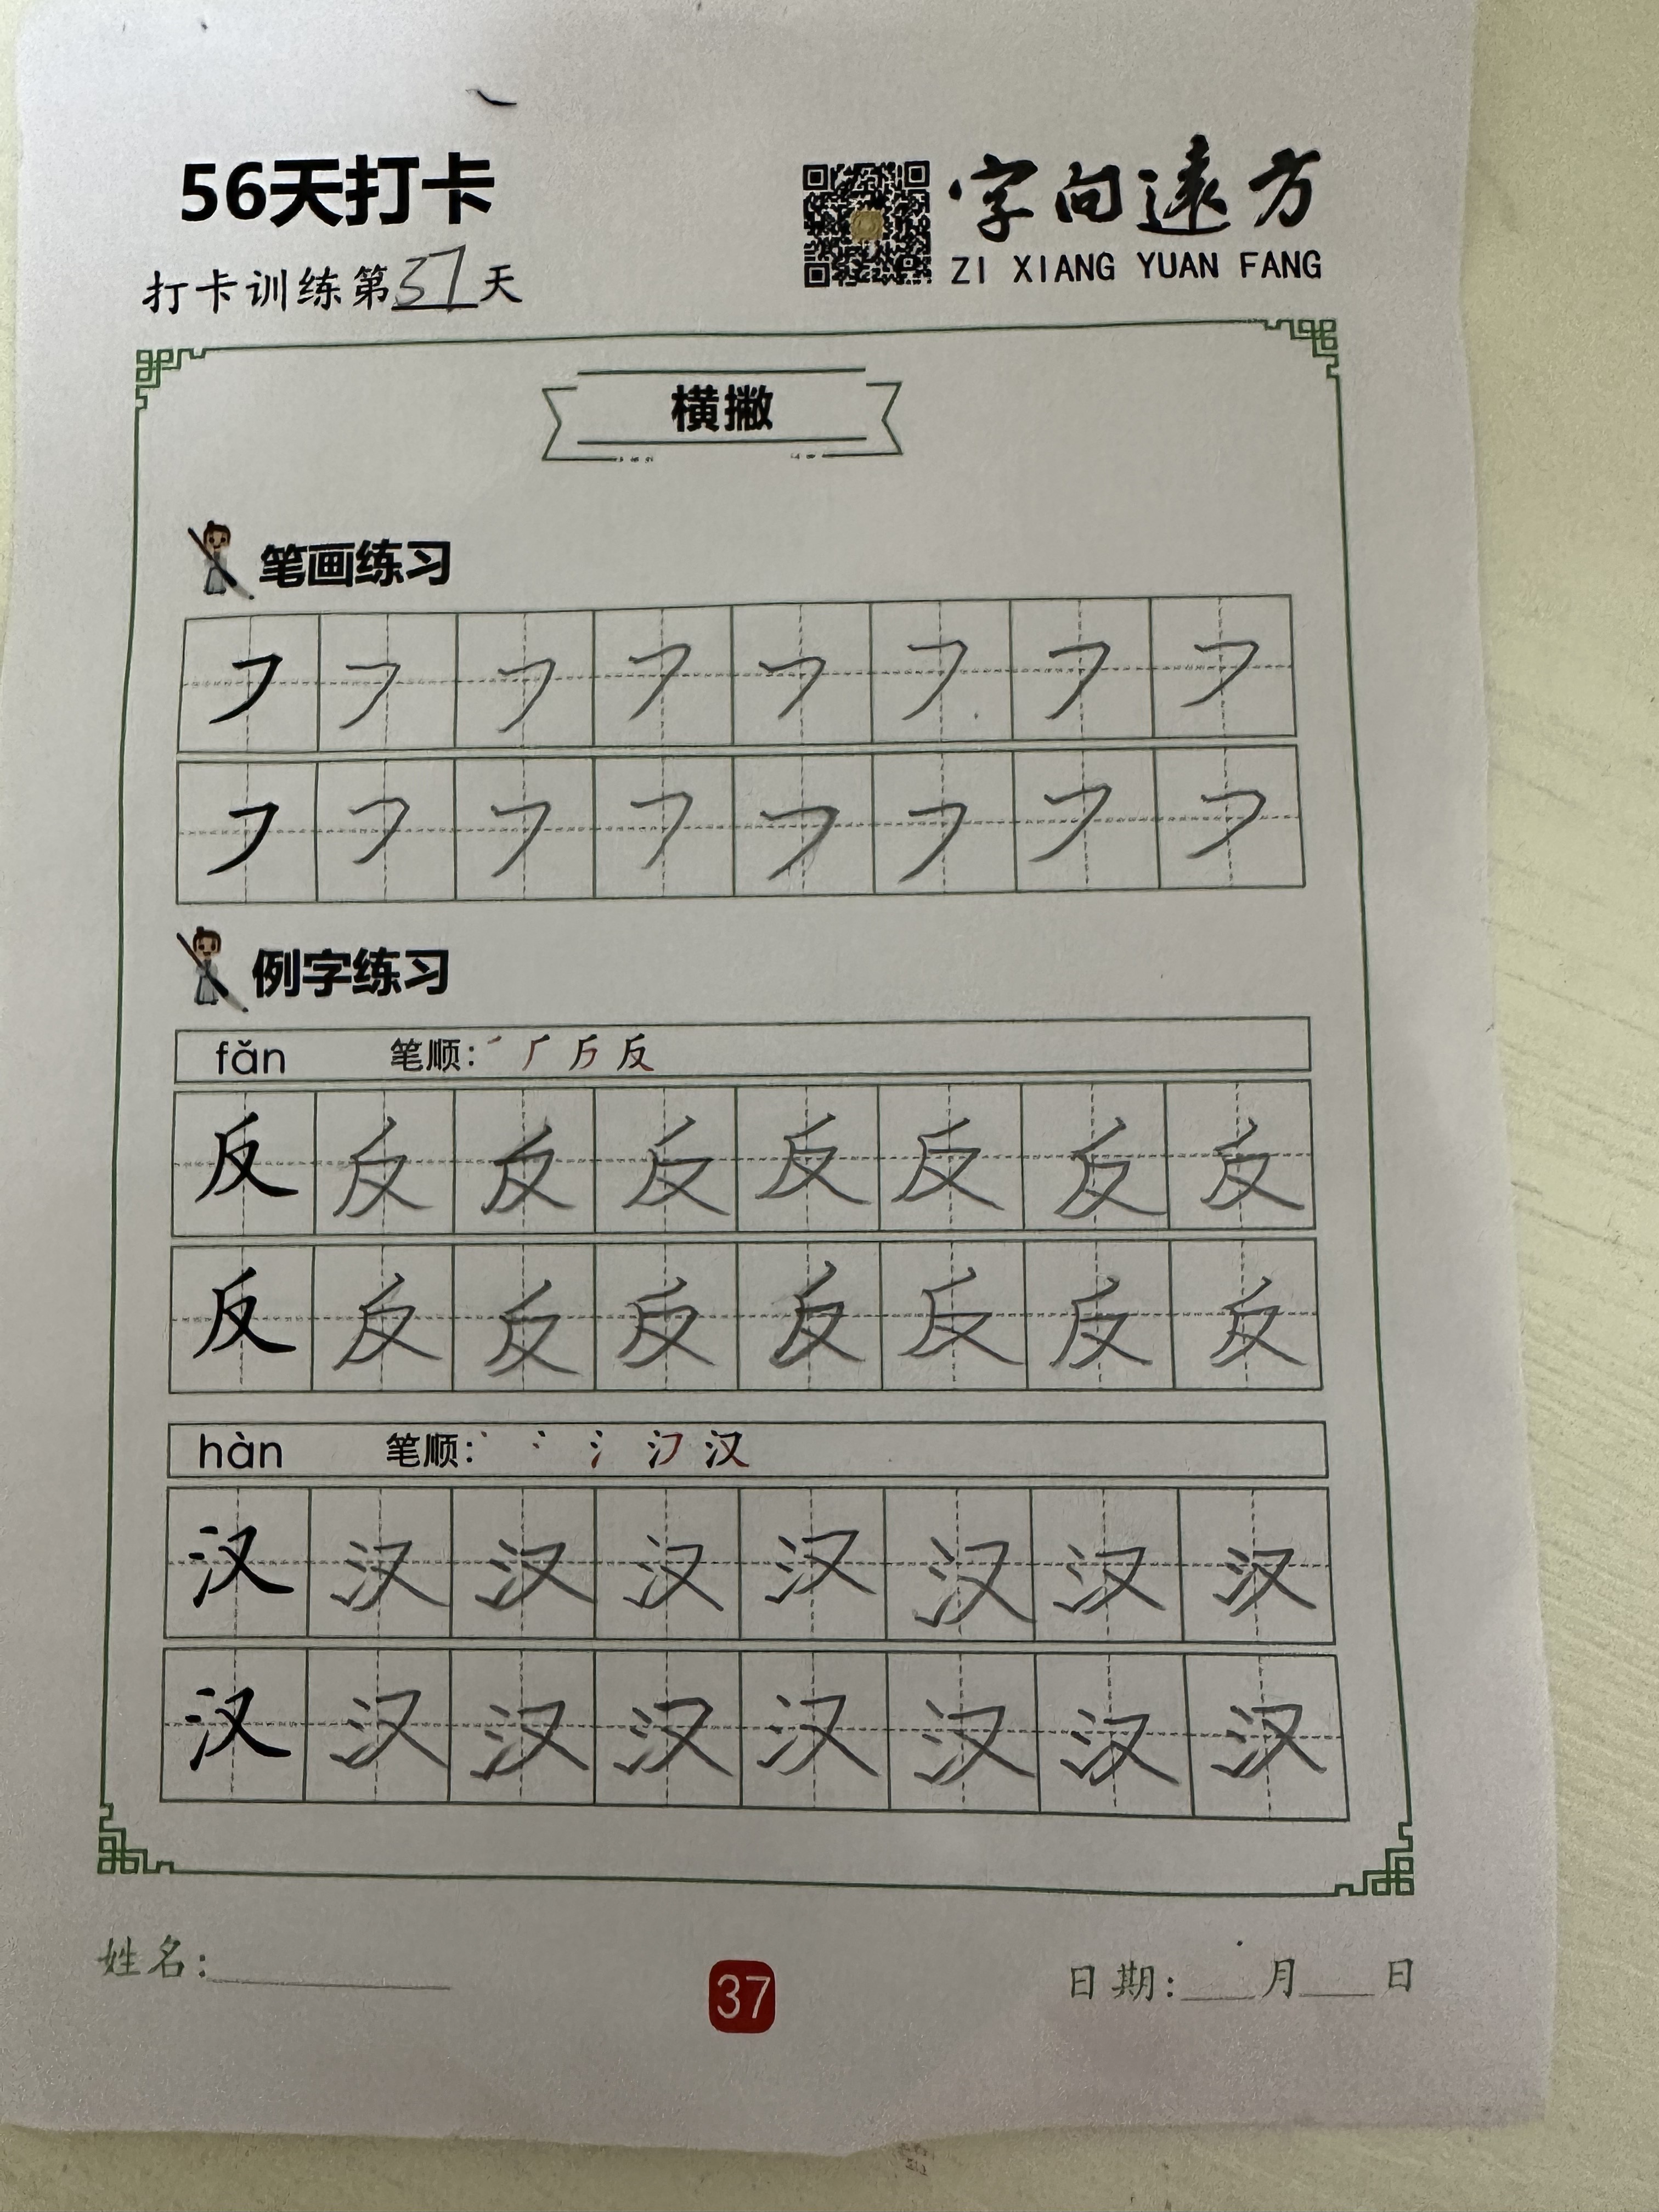 56天打卡
字向遠方
ZI XIANG YUAN FANG
打卡训练第37天
横撇
笔画练习
㇇ ㇇ ㇇ ㇇ ㇇ ㇇ ㇇ ㇇
㇇ ㇇ ㇇ ㇇ ㇇ ㇇ ㇇ ㇇
例字练习
fǎn 笔顺: ㇒ 厂 𠂆 反
反 反 反 反 反 反 反 反
反 反 反 反 反 反 反 反
hàn 笔顺: 丶 冫 氵 汉
汉 汉 汉 汉 汉 汉 汉 汉
汉 汉 汉 汉 汉 汉 汉 汉
姓名:
37
日期: 月 日